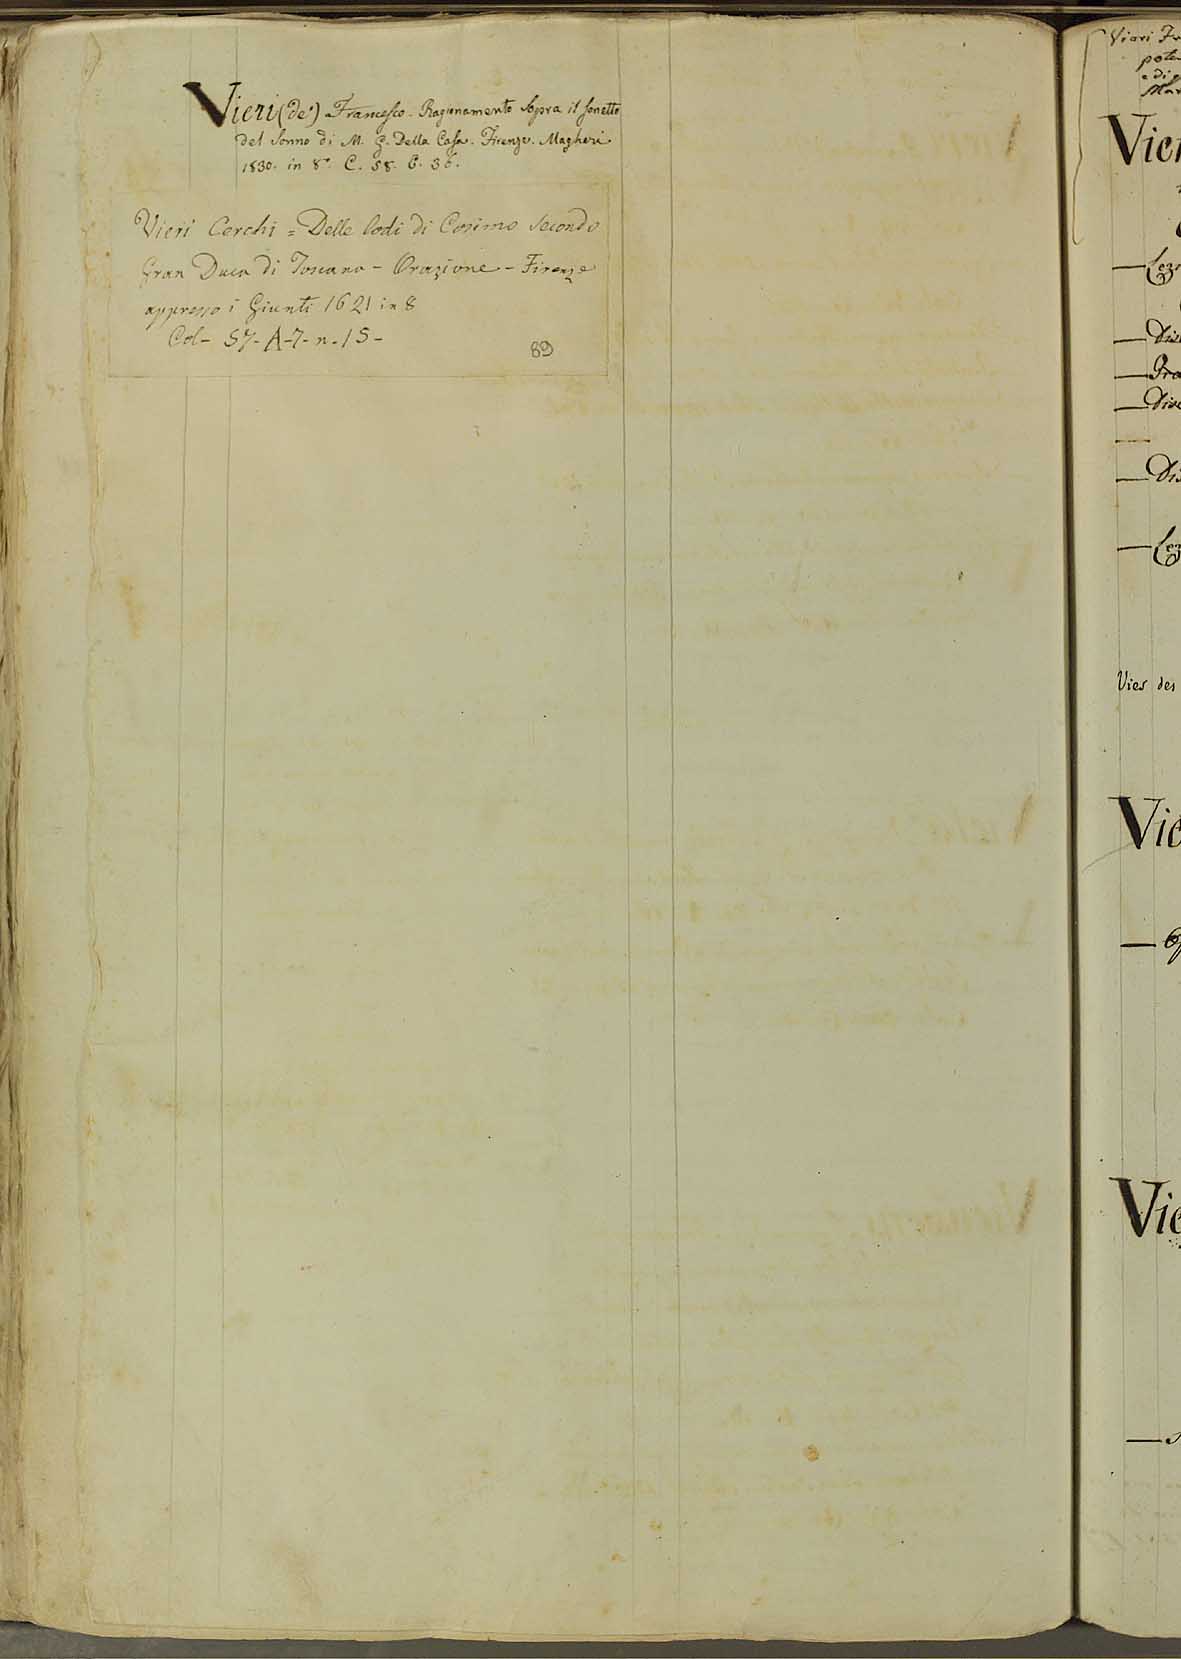 Vieri (de') Francesco. Ragionamento sopra il sonetto
del sonno di M. G. Della Casa. Firenze. Magheri
1830. in 8°. C. 58. C. 36.
Vieri Cerchi = Delle lodi di Cosimo secondo
Gran Duca di Toscana - Orazione - Firenze
appresso i Giunti 1621 in 8
Col - 57 - A - 7 - n - 15 -
89
Vieri
pote
e di
Mar
Vier
Lez
Dis
Pra
Disc
Dis
Lez
Vies des
Vie
Vie